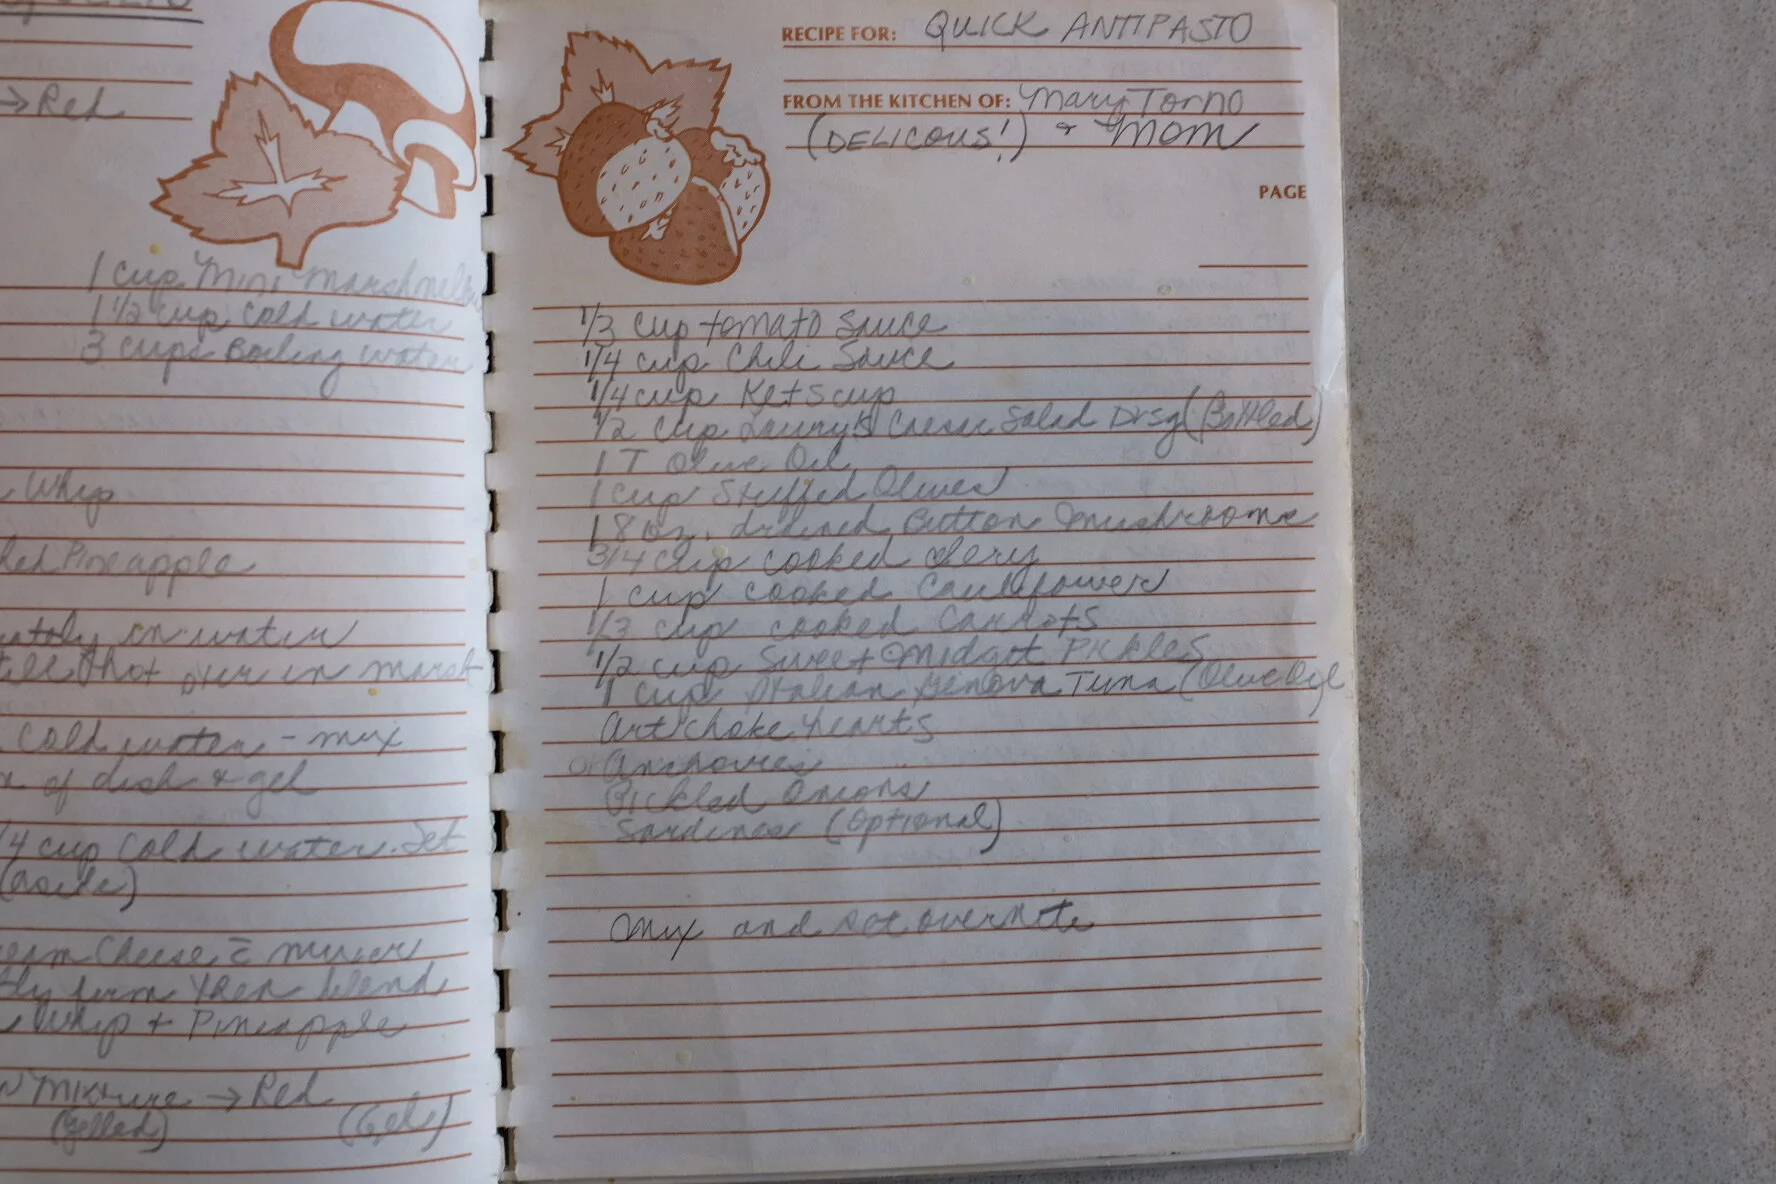 → Red
1 cup Mini Marshmell
1 1/2 cup cold water
3 cups Boiling water
Whip
Pineapple
in water
hot over in marsh
cold water - mix
of dish & gel
1/4 cup cold water. Set
(aside)
Cheese c̄ mixer
then blend
Whip + Pineapple
Mixture → Red
(gelled) (Gel)
RECIPE FOR: QUICK ANTIPASTO
FROM THE KITCHEN OF: Mary Torno
(DELICOUS!) & Mom
PAGE
1/3 cup tomato sauce
1/4 cup Chili Sauce
1/4 cup Ketscup
1/2 cup Lawry's Caesar Salad Drsg (Bottled)
1 T Olive Oil
1 cup Stuffed Olives
1 8 oz. drained Button mushrooms
3/4 cup cooked celery
1 cup cooked Cauliflower
1/3 cup cooked Carrots
1/2 cup Sweet Midget Pickles
1 cup Italian Genova Tuna (Olive Oyl
Artichoke hearts
Anchovies
Pickled Onions
Sardines (Optional)
Mix and set overnite